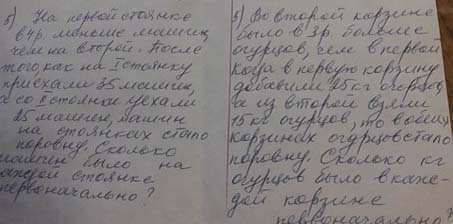 5) На первой стоянке
в 4р. меньше машин,
чем на второй. После
того, как на I стоянку
приехали 35 машин,
а со II стоянки уехали
25 машин, машин
на стоянках стало
поровну. Сколько
машин было на
каждой стоянке
первоначально?
5) Во второй корзине
было в 3р. больше
огурцов, чем в первой
Когда в первую корзину
добавили 25кг огурцов,
а из второй взяли
15кг огурцов, то в обеих
корзинах огурцов стало
поровну. Сколько кг
огурцов было в каж-
дой корзине
первоначально?